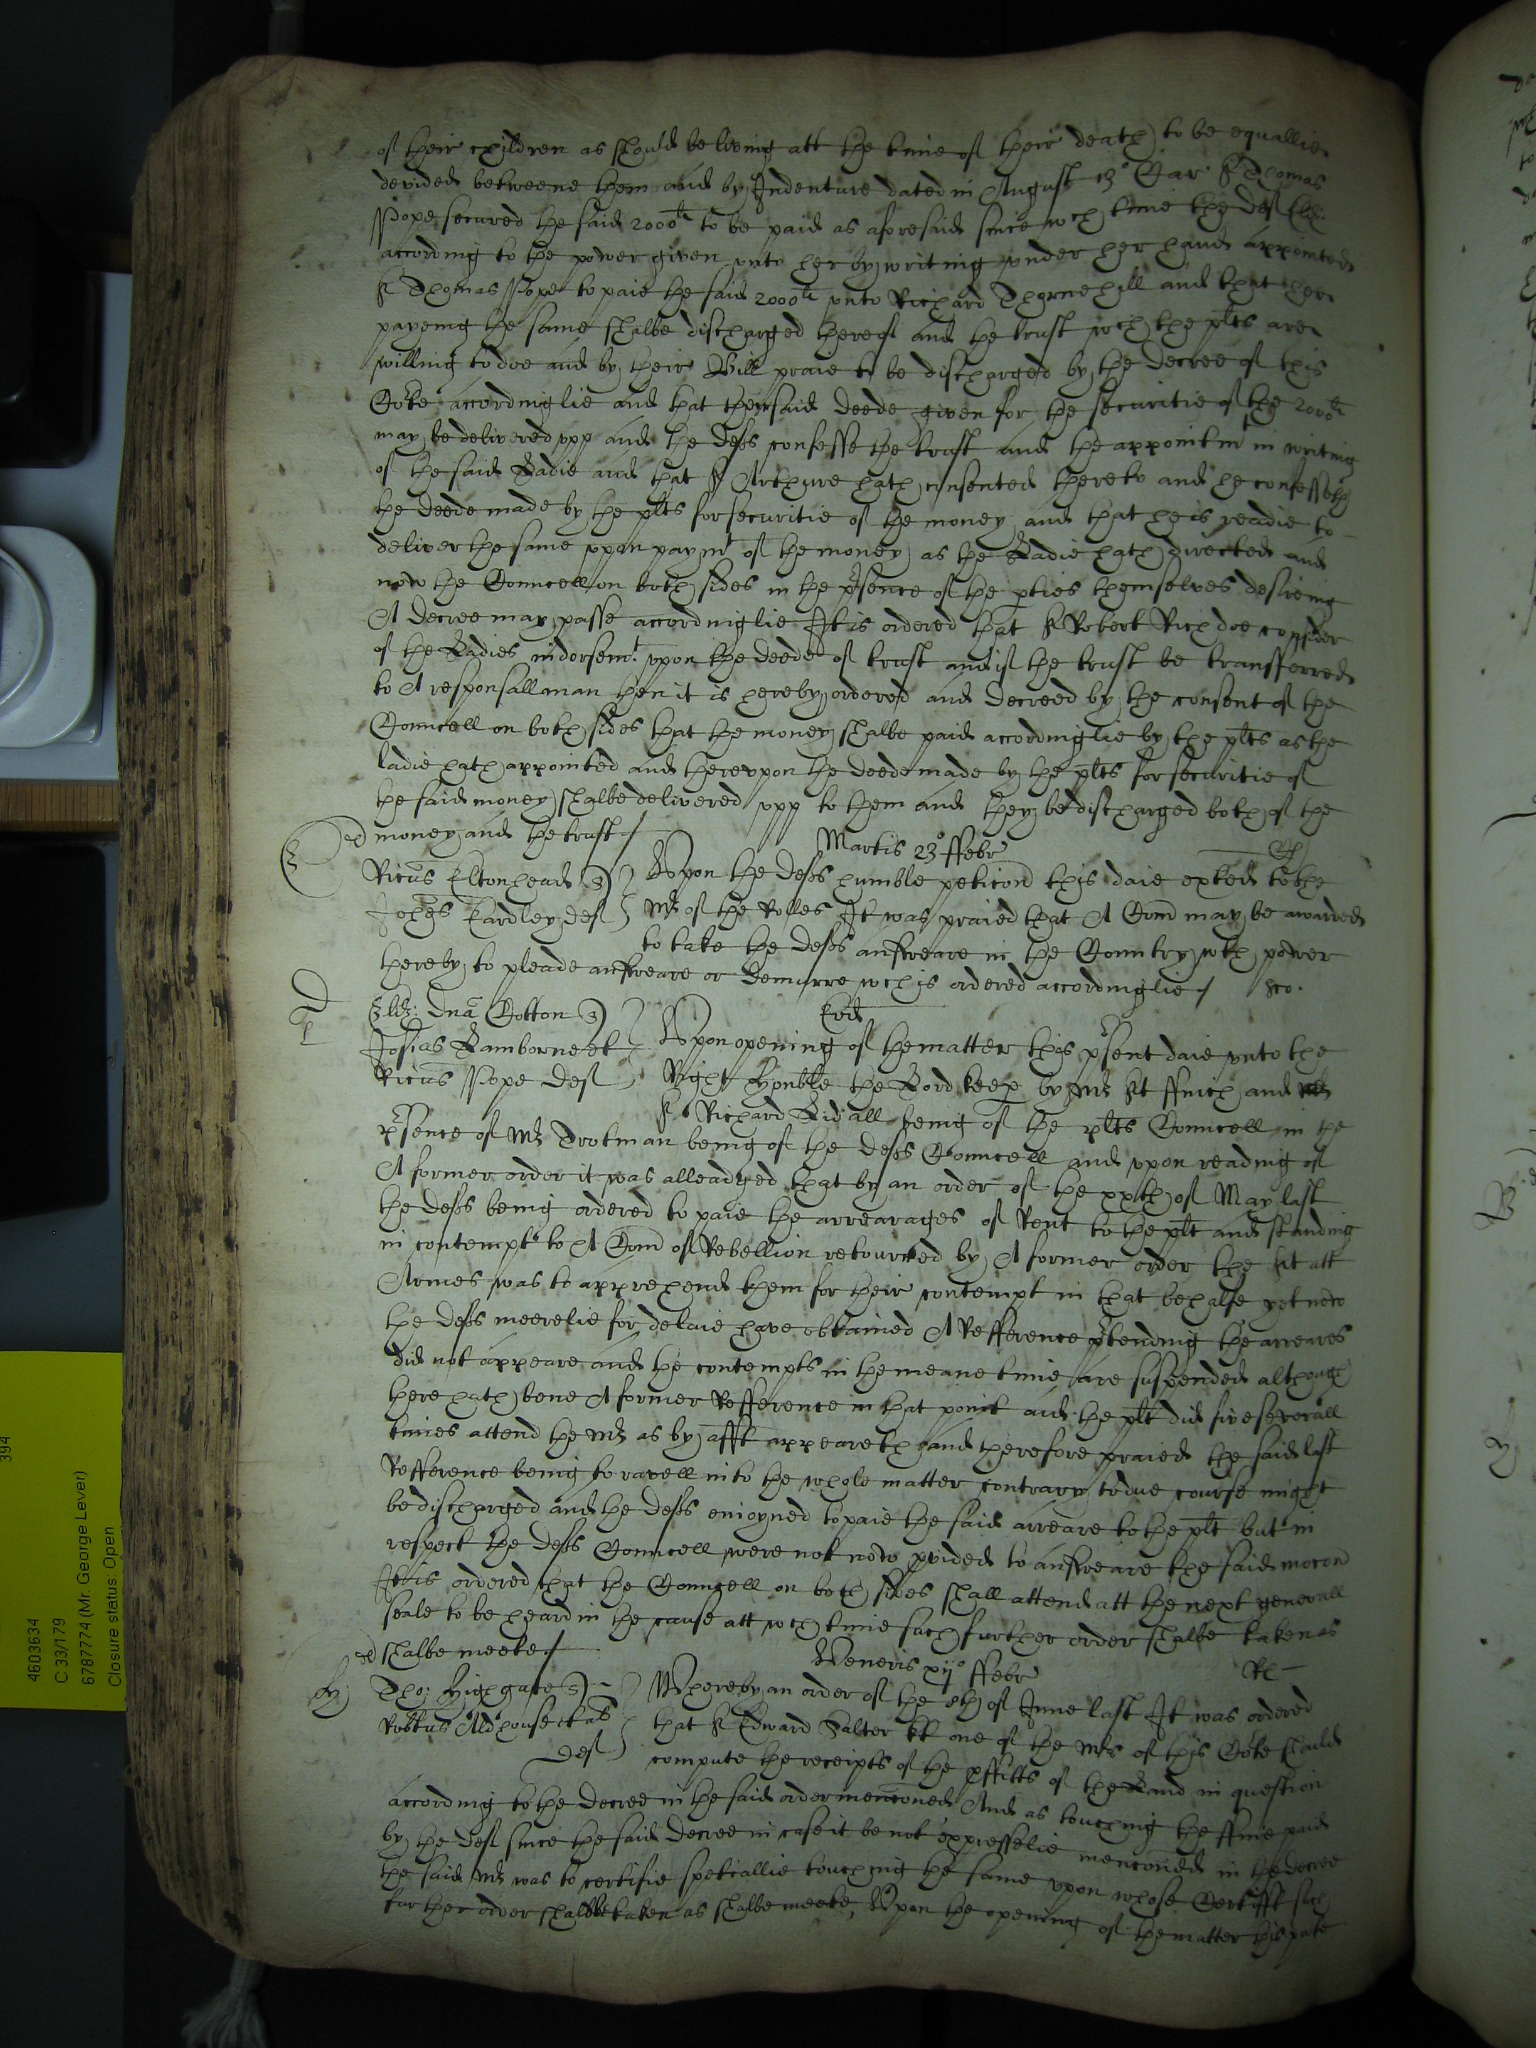 of their children as should be living att the time of their death to be equallie
devided betweene them and by Indenture dated in August 13° Car Sr Thomas
Pope secured the said 2000li to be paid as aforesaid since wch time the deft Eliz:
according to the power given unto her by writing under her hand appointed
Sr Thomas Pope to paie the said 2000li unto Richard Thornehill and that hee
payeing the same shalbe discharged thereof and the trust wch the plts are
willing to doe and by their Bill praie to be discharged by the decree of this
Corte accordinglie and that the said deede given for the securitie of the 2000li
may be delivered upp and the defts confesse the trust and the appointmt in writing
of the said Ladie and that Sr Arthure hath consented thereto and he confesseth
the deede made by the plts for securitie of the money and that he is readie to
deliver the same upon paymt of the money as the Ladie hath directed and
now the Councell on both sides in the psence of the pties themselves desireing
A decree may passe accordinglie It is ordered that Sr Robert Rich doe consider
of the Ladies indorsemt upon the deede of trust and if the trust be transferred
to A responsall man then it is hereby ordered and decreed by the consent of the
Councell on both sides that the money shalbe paid accordinglie by the plts as the
ladie hath appointed and thereupon the deede made by the plts for securitie of
the said money shalbe delivered upp to them and they be discharged both of the
money and the trust /
Martis 23° Febr
Ricus Eltonhead
Yardley deft
Upon the defts humble peticon this daie exted to the
Mr of the Rolles It was praied that A Com may be awarded
to take the defts answeare in the Country wth power
thereby to pleade answeare or demurre wch is ordered accordinglie /
Eliz: dna Cotton
Josias Lamborne et
Ricus Pope deft
Eod
Upon opening of the matter this psent daie unto the
Right Honble the Lord keep by Mr St Finch and
Sr Richard being of the plts Councell in the
psence of Mr Trotman being of the defts Councell and upon reading of
A former order it was alleadged that by an order of the xxth of May last
the defts being ordered to paie the arrearages of Rent to the plt and standing
in contempt to A Com of Rebellion retourned by A former order the St att
Armes was to apprehend them for their contempt in that behalfe yet now
the defts meerelie for delaie have obtained A Refference ptending the arreares
did not appeare and the contempts in the meane time are suspended although
there hath bene A former Refference in that point and the plt did five severall
times attend the Mr as by afft appeareth and therefore praied the said last
Refference being to ravell into the whole matter contrary to due course might
be discharged and the defts enioyned to paie the said arreare to the plt but in
respect the defts Councell were not now pvided to answeare the said mocon
It is ordered that the Councell on both sides shall attend att the next generall
seale to be heard in the cause att wch time such further order shalbe taken as
shalbe meete /
Veneris xij° Febr
Tho: Highgate
Robtus Aldhouse et al
deft
Whereby an order of the 8th of June last It was ordered
that Sr Edward Salter kt one of the Mrs of this Corte should
compute the receipts of the pffitts of the Land in question
according to the decree in the said order menconed And as touching the ffine paid
by the deft since the said decree in case it be not expresselie menconed in the decree
the said Mr was to certifie speciallie touching the same upon whose Certifft such
further order shalbe taken as shalbe meete, Upon the opening of the matter this pnte
4603634
C 33/179
6787774 (Mr. George Lever)
Closure status: Open
394